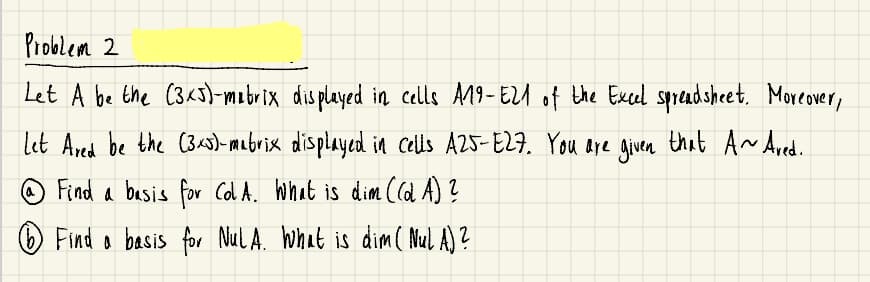 Problem 2
Let A be the (3×5)-matrix displayed in cells A19-E21 of the Excel spreadsheet. Moreover,
let Ared be the (3×5)-matrix displayed in cells A25-E27. You are given that A~Ared.
ⓐ Find a basis for Col A. What is dim(Col A)?
ⓑ Find a basis for Nul A. What is dim(Nul A)?